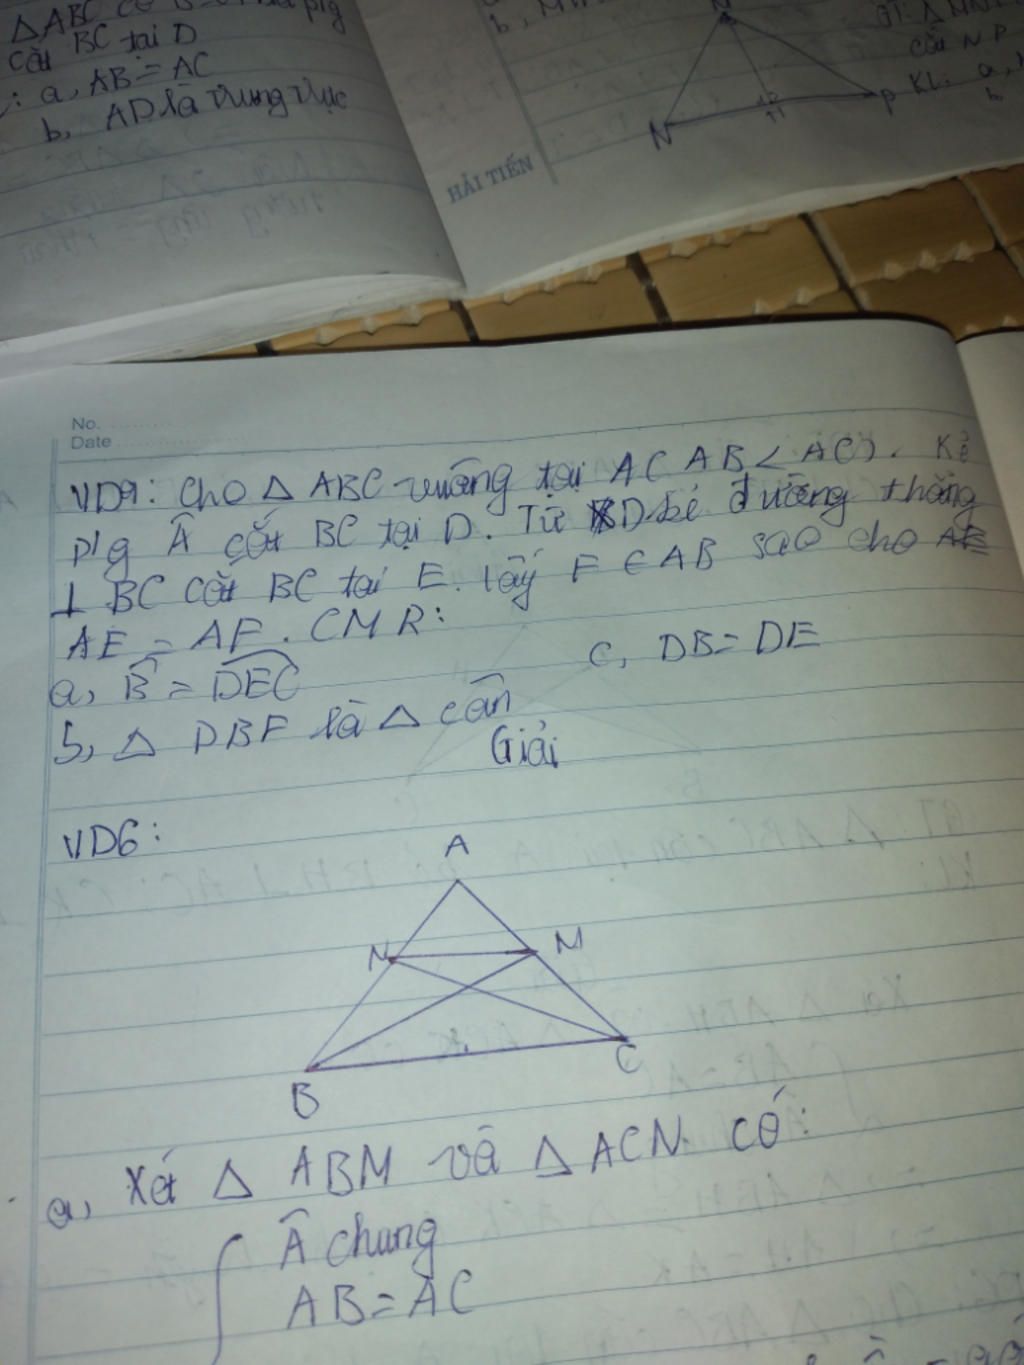 △ ABC
cắt BC tại D
a, AB = AC
b, AD là trung trực
b,
N
P
GT: △
cắt NP
KL: a,
b
HẢI TIẾN
No.
Date
VD9: Cho △ ABC vuông tại A ( AB < AC). Kẻ
p/g Â cắt BC tại D. Từ D kẻ đường thẳng
⊥ BC cắt BC tại E. lấy F ∈ AB sao cho AE
AE = AF. CMR:
a, B̂ = DEC
c, DB = DE
b, △ DBF là △ cân
Giải
VD6:
A
N
M
B
C
a, Xét △ ABM và △ ACN có:
Â chung
AB = AC